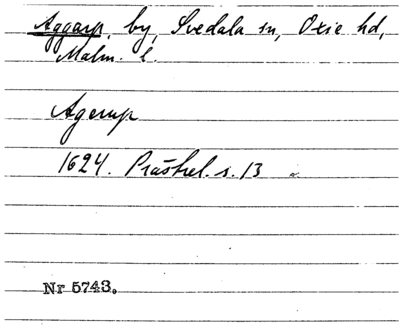 Aggarp, by, Svedala sn, Oxie hd,
Malm. l.
Agerup
1624. Pråstrel. s. 13
Nr 5743.